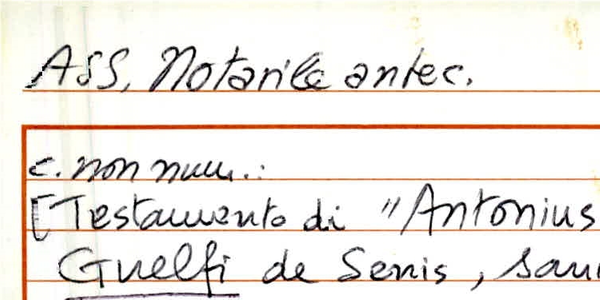 ASS, Notarile antec.
c. non num.:
[Testamento di "Antonius
Guelfi de Senis, sani